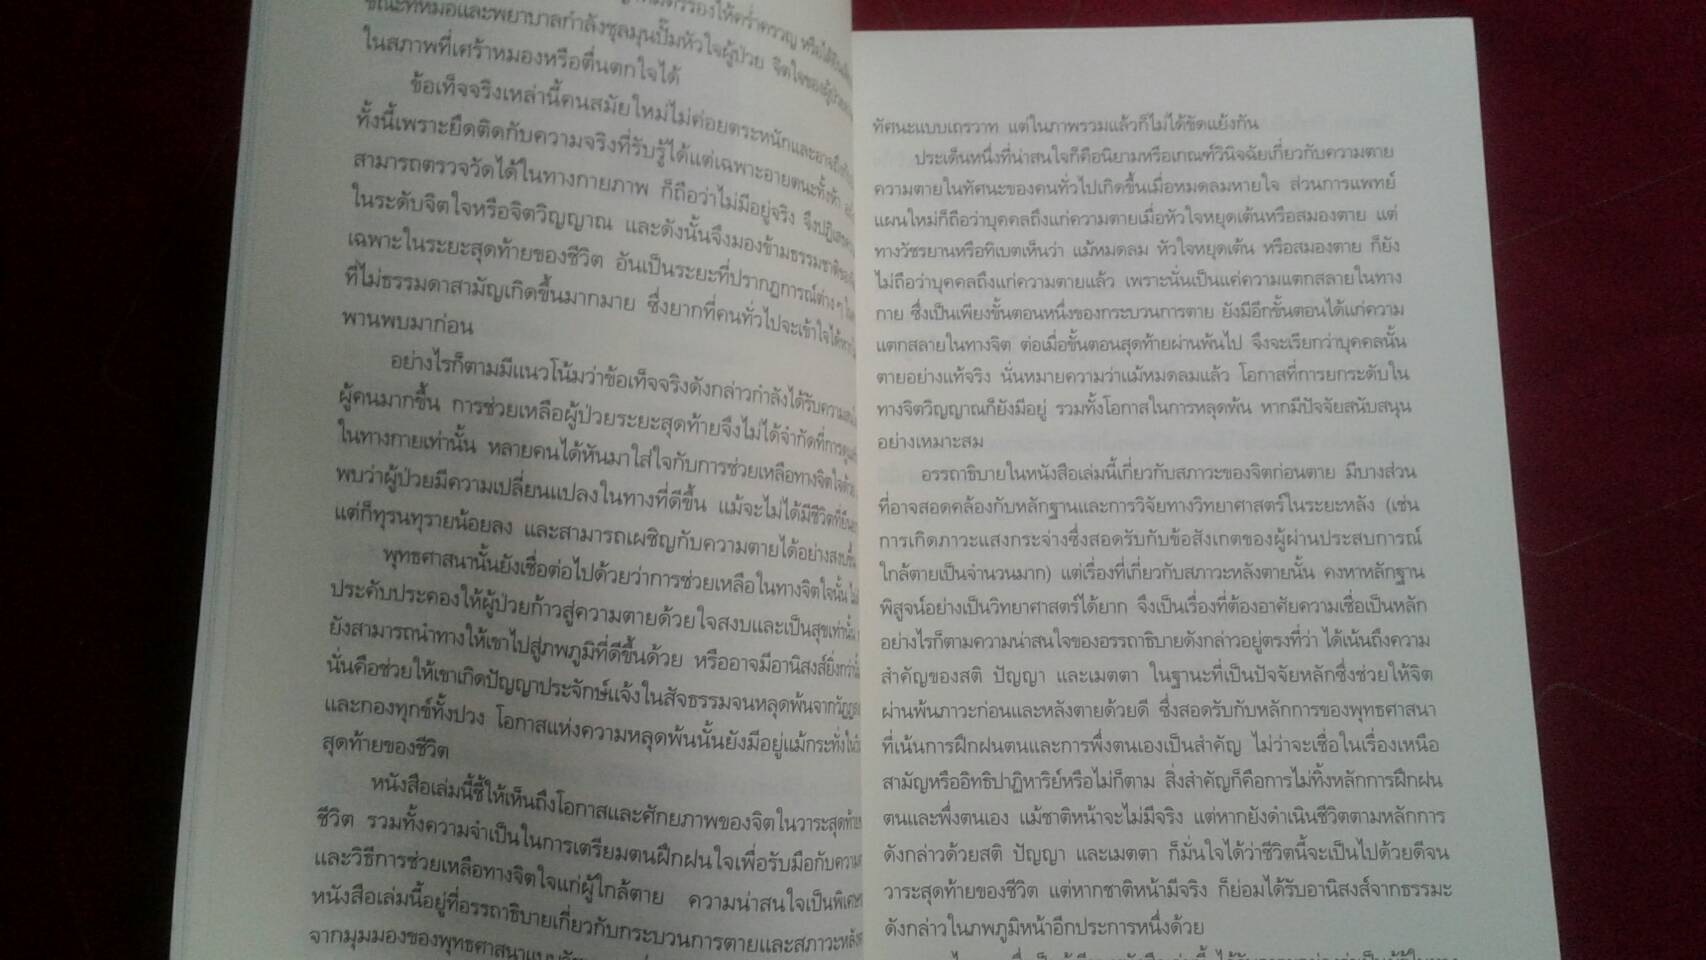 ขณะที่หมอและพยาบาลกำลังชุลมุนปั๊มหัวใจผู้ป่วย จิตใจของผู้ป่วย
ในสภาพที่เศร้าหมองหรือตื่นตกใจได้
ข้อเท็จจริงเหล่านี้คนสมัยใหม่ไม่ค่อยตระหนักและ
ทั้งนี้เพราะยึดติดกับความจริงที่รับรู้ได้แต่เฉพาะอายตนะทั้งห้า
สามารถตรวจวัดได้ในทางกายภาพ ก็ถือว่าไม่มีอยู่จริง จึงปฏิเสธ
ในระดับจิตใจหรือจิตวิญญาณ และดังนั้นจึงมองข้ามธรรมชาติ
เฉพาะในระยะสุดท้ายของชีวิต อันเป็นระยะที่ปรากฏการณ์ต่างๆ
ที่ไม่ธรรมดาสามัญเกิดขึ้นมากมาย ซึ่งยากที่คนทั่วไปจะเข้าใจได้
พานพบมาก่อน
อย่างไรก็ตามมีแนวโน้มว่าข้อเท็จจริงดังกล่าวกำลังได้รับความ
ผู้คนมากขึ้น การช่วยเหลือผู้ป่วยระยะสุดท้ายจึงไม่ได้จำกัดที่การดูแล
ในทางกายเท่านั้น หลายคนได้หันมาใส่ใจกับการช่วยเหลือทางจิตใจด้วย
พบว่าผู้ป่วยมีความเปลี่ยนแปลงในทางที่ดีขึ้น แม้จะไม่ได้มีชีวิตที่ยืนยาว
แต่ก็ทุรนทุรายน้อยลง และสามารถเผชิญกับความตายได้อย่างสงบขึ้น
พุทธศาสนานั้นยังเชื่อต่อไปด้วยว่าการช่วยเหลือในทางจิตใจนั้น
ประคับประคองให้ผู้ป่วยก้าวสู่ความตายด้วยใจสงบและเป็นสุขเท่านั้น
ยังสามารถนำทางให้เขาไปสู่ภพภูมิที่ดีขึ้นด้วย หรืออาจมีอานิสงส์ยิ่งกว่านั้น
นั่นคือช่วยให้เขาเกิดปัญญาประจักษ์แจ้งในสัจธรรมจนหลุดพ้นจาก
และกองทุกข์ทั้งปวง โอกาสแห่งความหลุดพ้นนั้นยังมีอยู่แม้กระทั่ง
สุดท้ายของชีวิต
หนังสือเล่มนี้ชี้ให้เห็นถึงโอกาสและศักยภาพของจิตในวาระสุดท้าย
ชีวิต รวมทั้งความจำเป็นในการเตรียมตนฝึกฝนใจเพื่อรับมือกับความ
และวิธีการช่วยเหลือทางจิตใจแก่ผู้ใกล้ตาย ความน่าสนใจเป็นพิเศษ
หนังสือเล่มนี้อยู่ที่อรรถาธิบายเกี่ยวกับกระบวนการตายและสภาวะหลัง
จากมุมมองของพุทธศาสนาแบบ
ทัศนะแบบเถรวาท แต่ในภาพรวมแล้วก็ไม่ได้ขัดแย้งกัน
ประเด็นหนึ่งที่น่าสนใจก็คือนิยามหรือเกณฑ์วินิจฉัยเกี่ยวกับความตาย
ความตายในทัศนะของคนทั่วไปเกิดขึ้นเมื่อหมดลมหายใจ ส่วนการแพทย์
แผนใหม่ก็ถือว่าบุคคลถึงแก่ความตายเมื่อหัวใจหยุดเต้นหรือสมองตาย แต่
ทางวัชรยานหรือทิเบตเห็นว่า แม้หมดลม หัวใจหยุดเต้น หรือสมองตาย ก็ยัง
ไม่ถือว่าบุคคลถึงแก่ความตายแล้ว เพราะนั่นเป็นแค่ความแตกสลายในทาง
กาย ซึ่งเป็นเพียงขั้นตอนหนึ่งของกระบวนการตาย ยังมีอีกขั้นตอนได้แก่ความ
แตกสลายในทางจิต ต่อเมื่อขั้นตอนสุดท้ายผ่านพ้นไป จึงจะเรียกว่าบุคคลนั้น
ตายอย่างแท้จริง นั่นหมายความว่าแม้หมดลมแล้ว โอกาสที่การยกระดับใน
ทางจิตวิญญาณก็ยังมีอยู่ รวมทั้งโอกาสในการหลุดพ้น หากมีปัจจัยสนับสนุน
อย่างเหมาะสม
อรรถาธิบายในหนังสือเล่มนี้เกี่ยวกับสภาวะของจิตก่อนตาย มีบางส่วน
ที่อาจสอดคล้องกับหลักฐานและการวิจัยทางวิทยาศาสตร์ในระยะหลัง (เช่น
การเกิดภาวะแสงกระจ่างซึ่งสอดรับกับข้อสังเกตของผู้ผ่านประสบการณ์
ใกล้ตายเป็นจำนวนมาก) แต่เรื่องที่เกี่ยวกับสภาวะหลังตายนั้น คงหาหลักฐาน
พิสูจน์อย่างเป็นวิทยาศาสตร์ได้ยาก จึงเป็นเรื่องที่ต้องอาศัยความเชื่อเป็นหลัก
อย่างไรก็ตามความน่าสนใจของอรรถาธิบายดังกล่าวอยู่ตรงที่ว่า ได้เน้นถึงความ
สำคัญของสติ ปัญญา และเมตตา ในฐานะที่เป็นปัจจัยหลักซึ่งช่วยให้จิต
ผ่านพ้นภาวะก่อนและหลังตายด้วยดี ซึ่งสอดรับกับหลักการของพุทธศาสนา
ที่เน้นการฝึกฝนตนและการพึ่งตนเองเป็นสำคัญ ไม่ว่าจะเชื่อในเรื่องเหนือ
สามัญหรืออิทธิปาฏิหาริย์หรือไม่ก็ตาม สิ่งสำคัญก็คือการไม่ทิ้งหลักการฝึกฝน
ตนและพึ่งตนเอง แม้ชาติหน้าจะไม่มีจริง แต่หากยังดำเนินชีวิตตามหลักการ
ดังกล่าวด้วยสติ ปัญญา และเมตตา ก็มั่นใจได้ว่าชีวิตนี้จะเป็นไปด้วยดีจน
วาระสุดท้ายของชีวิต แต่หากชาติหน้ามีจริง ก็ย่อมได้รับอานิสงส์จากธรรมะ
ดังกล่าวในภพภูมิหน้าอีกประการหนึ่งด้วย